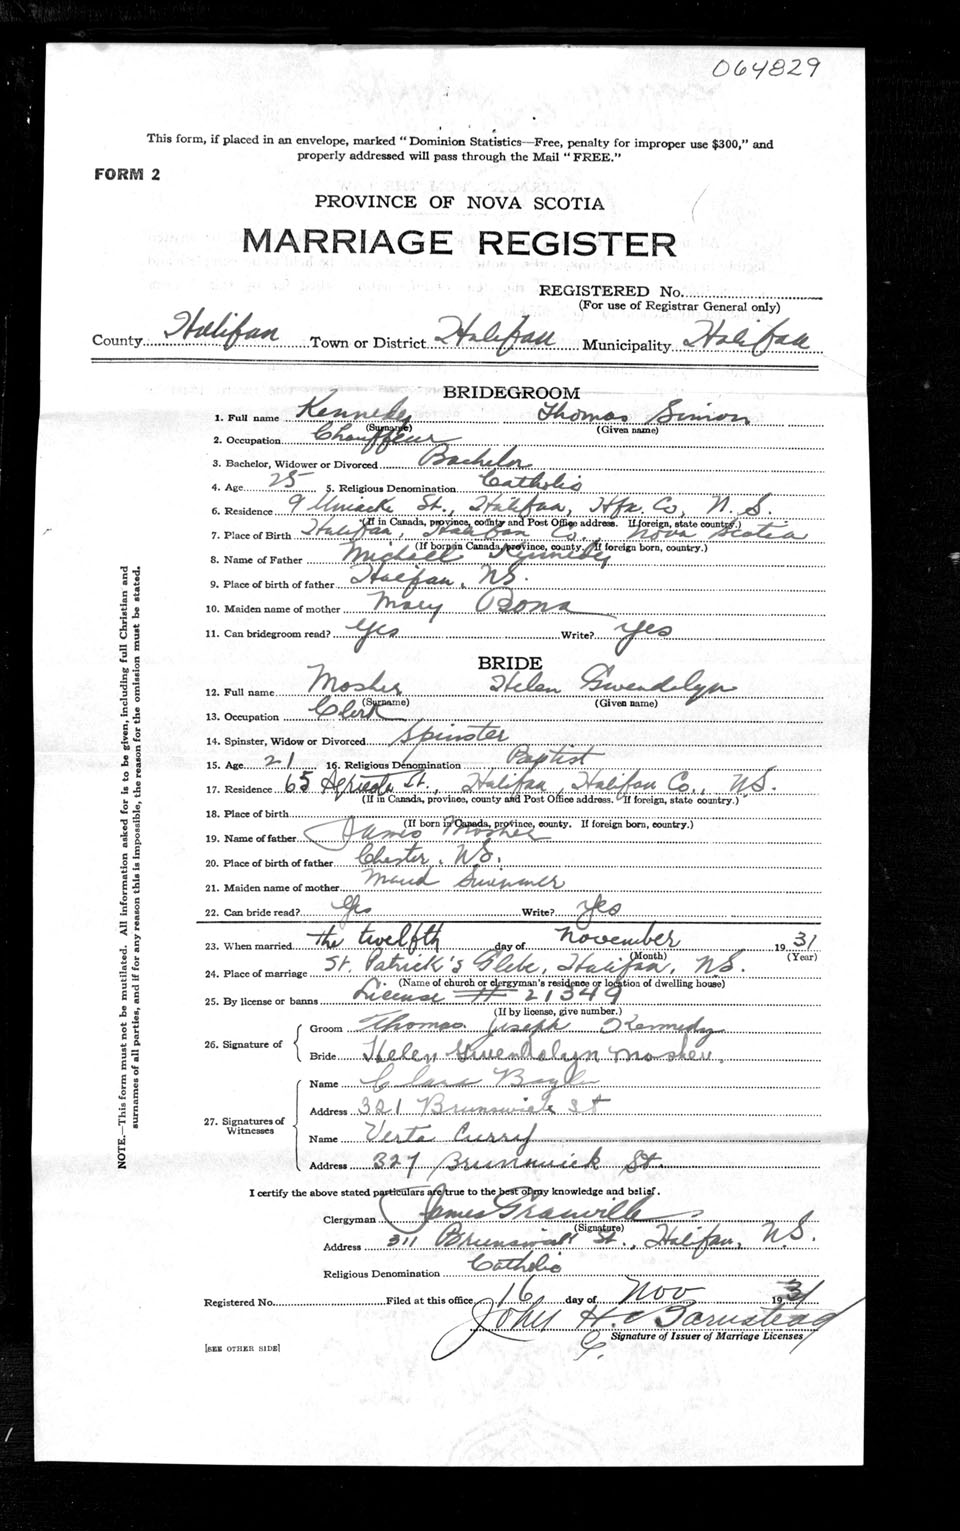 064829
This form, if placed in an envelope, marked "Dominion Statistics—Free, penalty for improper use $300," and
properly addressed will pass through the Mail "FREE."
FORM 2
PROVINCE OF NOVA SCOTIA
MARRIAGE REGISTER
REGISTERED No.
(For use of Registrar General only)
County Halifax Town or District Halifax Municipality Halifax
BRIDEGROOM
1. Full name Kennedy Thomas Simon
(Surname) (Given name)
2. Occupation Chauffeur
3. Bachelor, Widower or Divorced Bachelor
4. Age 25 5. Religious Denomination Catholic
6. Residence 9 Uniacke St., Halifax, Hfx. Co, N.S.
(If in Canada, province, county and Post Office address. If foreign, state country.)
7. Place of Birth Halifax, Halifax Co. Nova Scotia
(If born in Canada, province, county. If foreign born, country.)
8. Name of Father Michael Kennedy
9. Place of birth of father Halifax, N.S.
10. Maiden name of mother Mary
11. Can bridegroom read? Yes Write? Yes
BRIDE
12. Full name Mosher Helen Gwendolyn
(Surname) (Given name)
13. Occupation Clerk
14. Spinster, Widow or Divorced Spinster
15. Age 21 16. Religious Denomination Baptist
17. Residence 65 Agricola St., Halifax, Halifax Co., N.S.
(If in Canada, province, county and Post Office address. If foreign, state country.)
18. Place of birth
(If born in Canada, province, county. If foreign born, country.)
19. Name of father James Mosher
20. Place of birth of father Chester, N.S.
21. Maiden name of mother Maud Swimmer
22. Can bride read? Yes Write? Yes
23. When married the twelfth day of November 1931
(Month) (Year)
24. Place of marriage St. Patrick's Glebe, Halifax, N.S.
(Name of church or clergyman's residence or location of dwelling house)
25. By license or banns License # 21349
(If by license, give number.)
26. Signature of
Groom Thomas Joseph Kennedy
Bride Helen Gwendolyn Mosher
27. Signatures of
Witnesses
Name Clara
Address 321 Brunswick St
Name Verta Curry
Address 327 Brunswick St.
I certify the above stated particulars are true to the best of my knowledge and belief.
Clergyman James Granville
(Signature)
Address 311 Brunswick St., Halifax, N.S.
Religious Denomination Catholic
Registered No. Filed at this office 16 day of Nov 1931
John H.
Signature of Issuer of Marriage Licenses
[SEE OTHER SIDE]
NOTE.—This form must not be mutilated. All information asked for is to be given, including full Christian and
surnames of all parties, and if for any reason this is impossible, the reason for the omission must be stated.